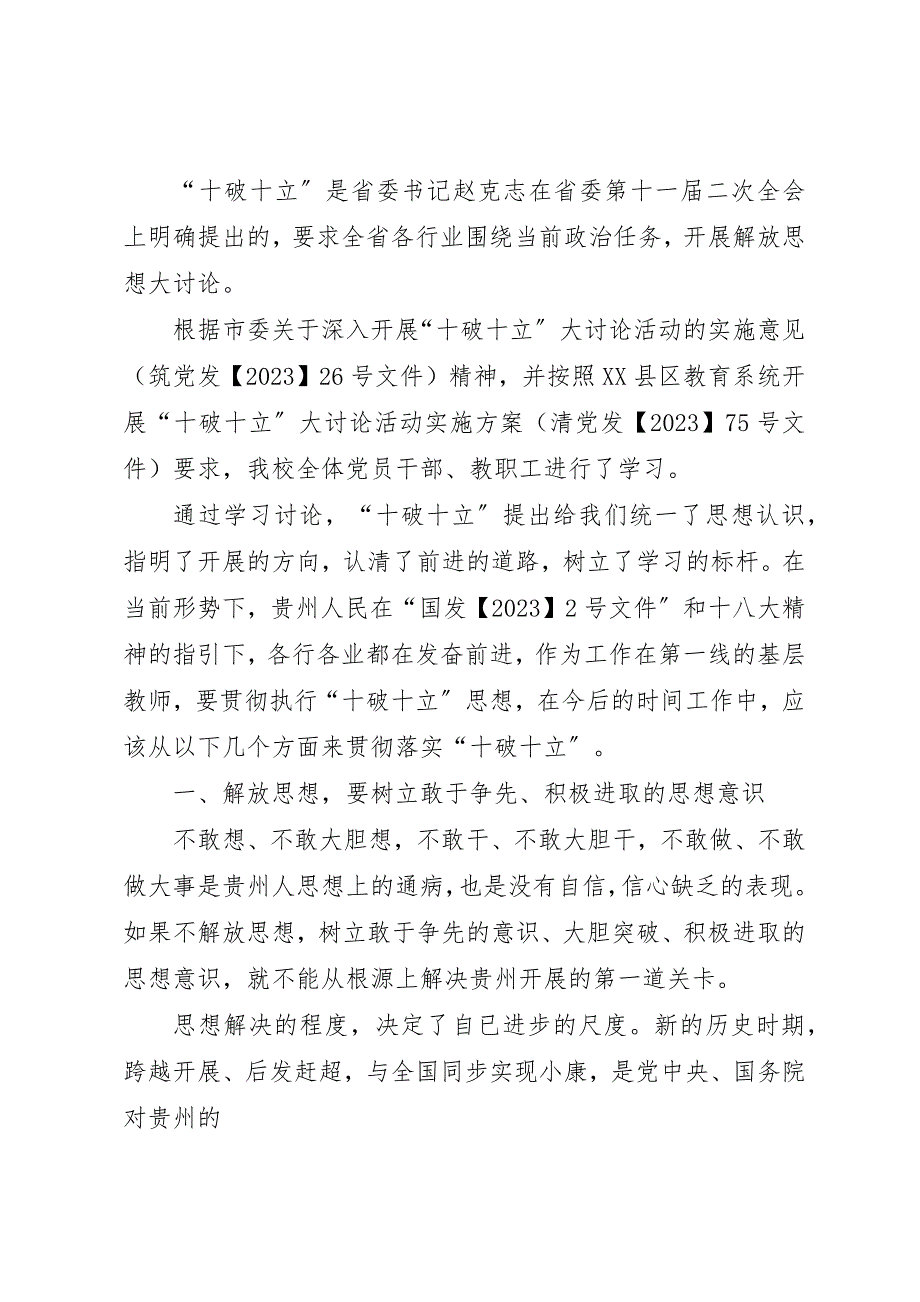 “十破十立〞是省委书记赵克志在省委第十一届二次全会
上明确提出的，要求全省各行业围绕当前政治任务，开展解放思
想大讨论。
根据市委关于深入开展“十破十立〞大讨论活动的实施意见
（筑党发【2023】26 号文件）精神，并按照 XX 县区教育系统开
展“十破十立〞大讨论活动实施方案（清党发【2023】75 号文
件）要求，我校全体党员干部、教职工进行了学习。
通过学习讨论，“十破十立〞提出给我们统一了思想认识，
指明了开展的方向，认清了前进的道路，树立了学习的标杆。在
当前形势下，贵州人民在“国发【2023】2 号文件〞和十八大精
神的指引下，各行各业都在发奋前进，作为工作在第一线的基层
教师，要贯彻执行“十破十立〞思想，在今后的时间工作中，应
该从以下几个方面来贯彻落实“十破十立〞。
一、解放思想，要树立敢于争先、积极进取的思想意识
不敢想、不敢大胆想，不敢干、不敢大胆干，不敢做、不敢
做大事是贵州人思想上的通病，也是没有自信，信心缺乏的表现。
如果不解放思想，树立敢于争先的意识、大胆突破、积极进取的
思想意识，就不能从根源上解决贵州开展的第一道关卡。
思想解决的程度，决定了自已进步的尺度。新的历史时期，
跨越开展、后发赶超，与全国同步实现小康，是党中央、国务院
对贵州的